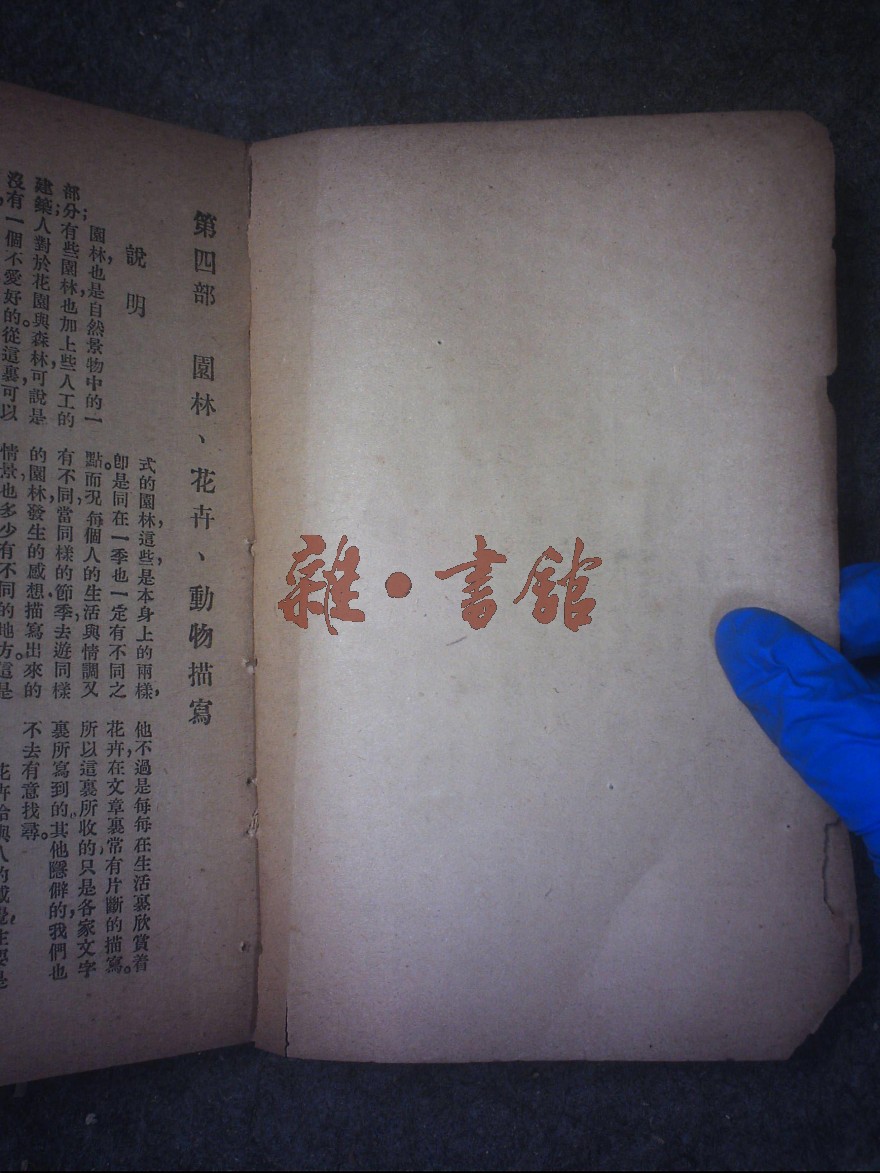 第四部　園林、花卉、動物描寫
說明
園林，也是自然景物中的一
部分；有些園林也加上些人工的
建築，人對於花園與森林，可說是
沒有一個不愛好的。從這裏，可以
式的園林，這些是本身上的兩樣，
卽是同在一季也一定有不同之
點。而況每個人的生活與情調又
有不同，當同樣的節季去遊同樣
的園林，發生的感想，描寫出來的
情景，也多少有不同的地方。這是
他不過是每每在生活裏欣賞着
花卉，在文章裏常有片斷的描寫。
所以這裏所收的，只是各家文字
裏所寫到的。其他隱僻的，我們也
不去有意找尋。
雜·書館